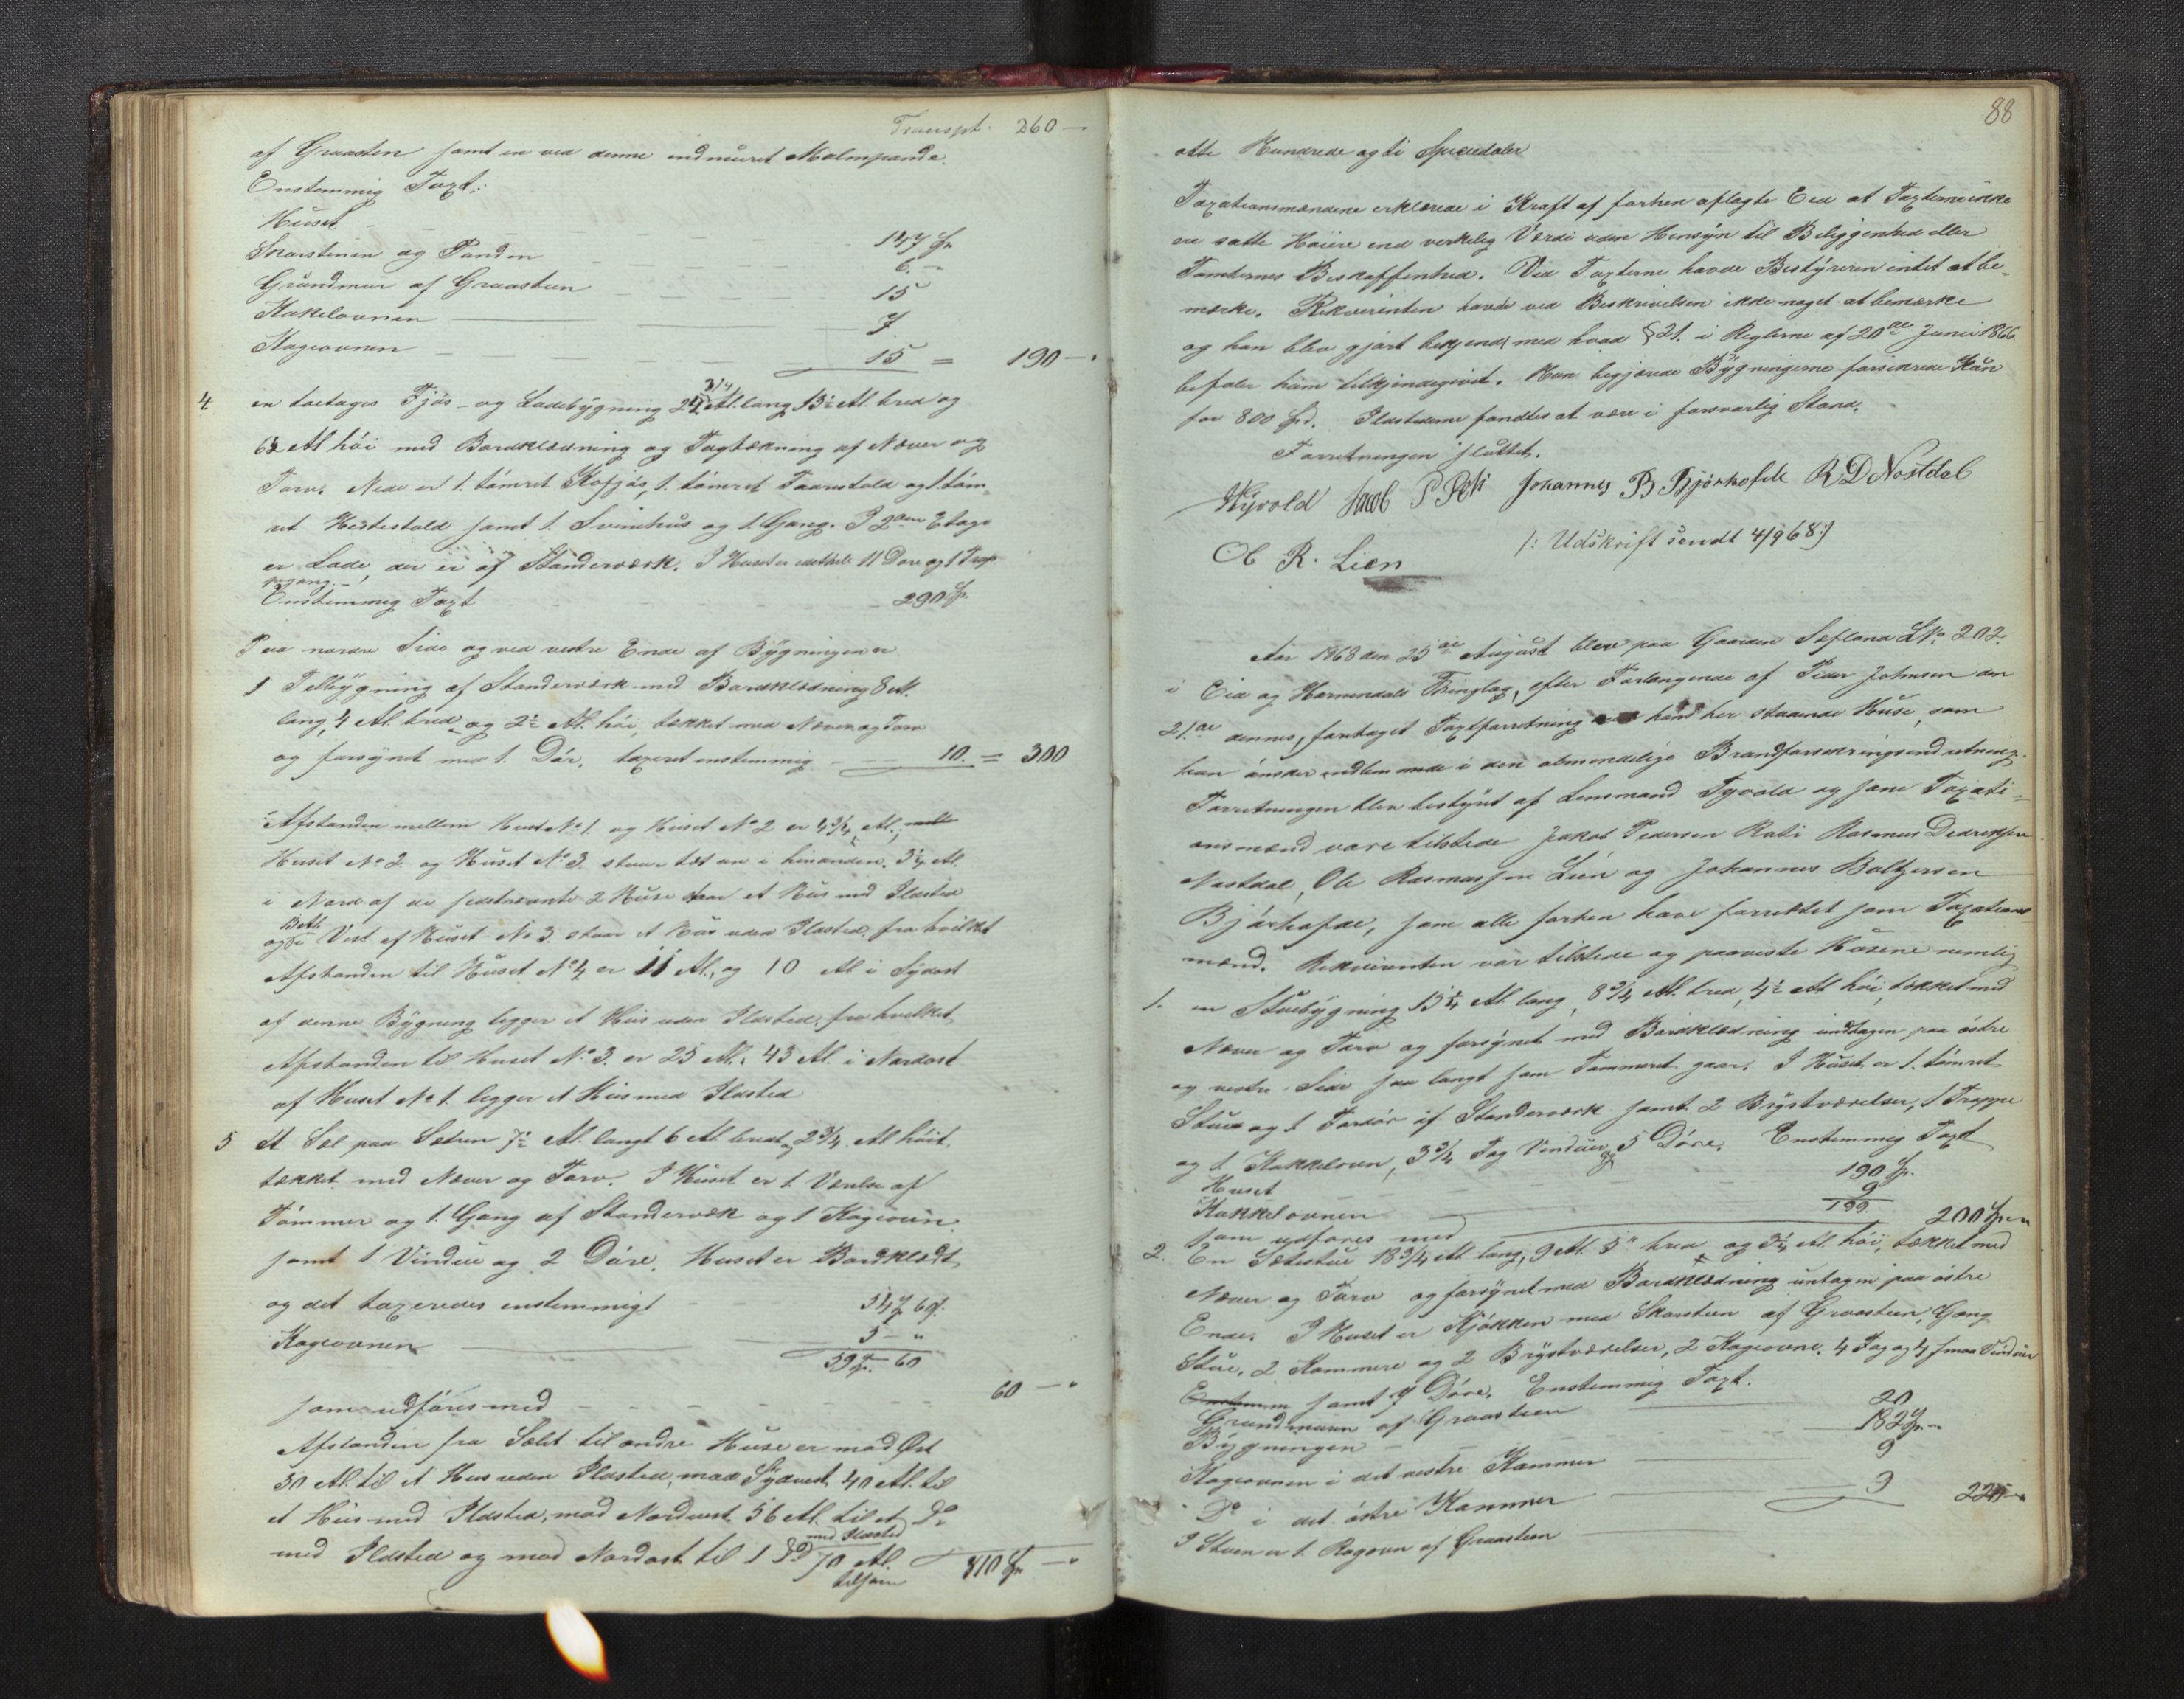 Transpt. 260 —
af Graasten samt en ved denne indmuret Malmpande.
Enstemmig Taxt:
Huset 147 Sp.
Skorstenen og Panden 6. "
Grundmur af Graasteen 15
Kakelovnen 7
Kageovnen 15 = 190 — "
4. en toetages Fjøs- og Ladebygning 24 3/4 Al. lang 13½ Al. bred og
6½ Al høi med Bordklædning og Tagtækning af Næver og
Torv. Nede er 1. tømret Kofjøs, 1. tømret Faarestald og 1 tøm-
ret Hestestald samt 1. Svinehus og 1. Gang. I 2den Etage
er Lade, der er af Standerværk. I Huset er idethele 11 Døre og 1 Trap-
pegang. —
Enstemmig Taxt 290 Sp.
Paa nordre Side og ved vestre Ende af Bygningen er
1 Tilbygning af Standerværk med Bordklædning 8 Al.
lang, 4 Al. bred og 2½ Al. høi, tækket med Næver og Torv
og forsynet med 1. Dør, taxeret enstemmig 10. = 300
Afstanden mellem Huset No 1. og Huset No 2 er 4 3/4 Al.; mellem
Huset No 2. og Huset No 3. staar tæt an i hinanden. 3½ Al.
i Nord af de sidstnævnte 2 Huse staar et Hus med Ildsted
og 13 Al. i Vest af Huset No 3. staar et Hus uden Ildsted, fra hvilket
Afstanden til Huset No 4 er 11 Al., og 10 Al i Sydost
af denne Bygning ligger et Hus uden Ildsted, fra hvilket
Afstanden til Huset No 3. er 25 Al. 43 Al. i Nordost
af Huset No 1. ligger et Hus med Ildsted
5 Et Sel paa Sætren 7½ Al. langt 6 Al. bredt, 2 3/4 Al høit,
tækket med Næver og Torv. I Huset er 1. Værelse af
Tømmer og 1. Gang af Standerværk og 1 Kageovn
samt 1 Vindue og 2 Døre. Huset er Bordklædt
og det taxeredes enstemmigt 54 Sp 60 s.
Kageovnen 5 — "
59 Sp. 60
som udføres med 60 — "
Afstanden fra Selet til andre Huse er mod Øst
30 Al. til et Hus uden Ildsted, mod Sydvest 40 Al. til
et Hus med Ildsted, mod Nordvest 56 Al. til et Do
med Ildsted og mod Nordost til 1 Do med Ildsted 70 Al. 810 Sp. — "
tilsam
88
otte Hundrede og ti Speciedaler
Taxationsmændene erklærede i Kraft af forhen aflagte Eed at Taxterne ikke
ere satte Høiere end verkelig Værdi uden Hensyn til Beliggenhed eller
Tomternes Beskaffenhed. Ved Taxterne havde Bestyreren intet at be-
mærke. Rekvirenten havde ved Beskrivelsen ikke noget at bemærke
og han blev gjørt bekjendt med hvad § 21. i Reglerne af 20de Juni 1866
befaler ham tilkjendegivet. Han begjærede Bygningerne forsikrede Kun
for 800 Spd. Ildstederne fandtes at være i forsvarlig Stand.
Forretningen sluttet.
Hyvold Jacob P Roti Johannes B Bjørhofde R D Nøstdal
Ol R. Lien /: Udskrift sendt 4/9 68 :/
Aar 1868 den 25de August blev paa Gaarden Sefland LNo 202.
i Eid og Hornindals Thinglag, efter Forlangende af Peder Johnsen den
21de dennes, foretaget Taxtforretning over hans her staaende Huse, som
han ønsker indlemmede i den almindelige Brandforsikringsindretning.
Forretningen blev bestyret af Lensmand Hyvold og som Taxati-
onsmænd vare tilstede Jakob Pedersen Roti Rasmus Didriksen
Nøstdal, Ole Rasmussen Lien og Johannes Baltzersen
Bjørhofde, som alle forhen have forrettet som Taxations-
mænd. Rekvirenten var tilstede og paaviste Husene nemlig
1. en Stuebygning 13¼ Al. lang, 8 3/4 Al. bred, 4½ Al. høi, tækket med
Næver og Torv og forsynet med Bordklædning undtagen paa østre
og vestre Side saa langt som Tømmeret gaar. I Huset er 1. tømret
Stue og 1 Fordør af Standerværk samt 2 Brystværelser, 1 Trappe
og 1 Kakkelovn, 3 3/4 Fag Vinduer og 5 Døre. Enstemmig Taxt
Huset 190 Sp.
Kakkelovnen 9
199.
som udføres med 200 Sp "
2. En Sætestue 18 3/4 Al lang, 9 Al. 5" bred og 3¼ Al. høi, tækket med
Næver og Torv og forsynet med Bordklædning untagen paa østre
Ende. I Huset er Kjøkken med Skorsteen af Graasteen, Gang
Stue, 2 Kammere og 2 Brystværelser, 2 Kageovne. 4 Fag og 4 smaa Vinduer
Enstemm samt 7 Døre. Enstemmig Taxt.
Grundmuren af Graasteen 20
Bygningen 182 Sp. "
Kageovnen i det vestre Kammer 9
" Do i det østre Kammer 9 220 — "
I Stuen er 1. Rogovn af Graasteen